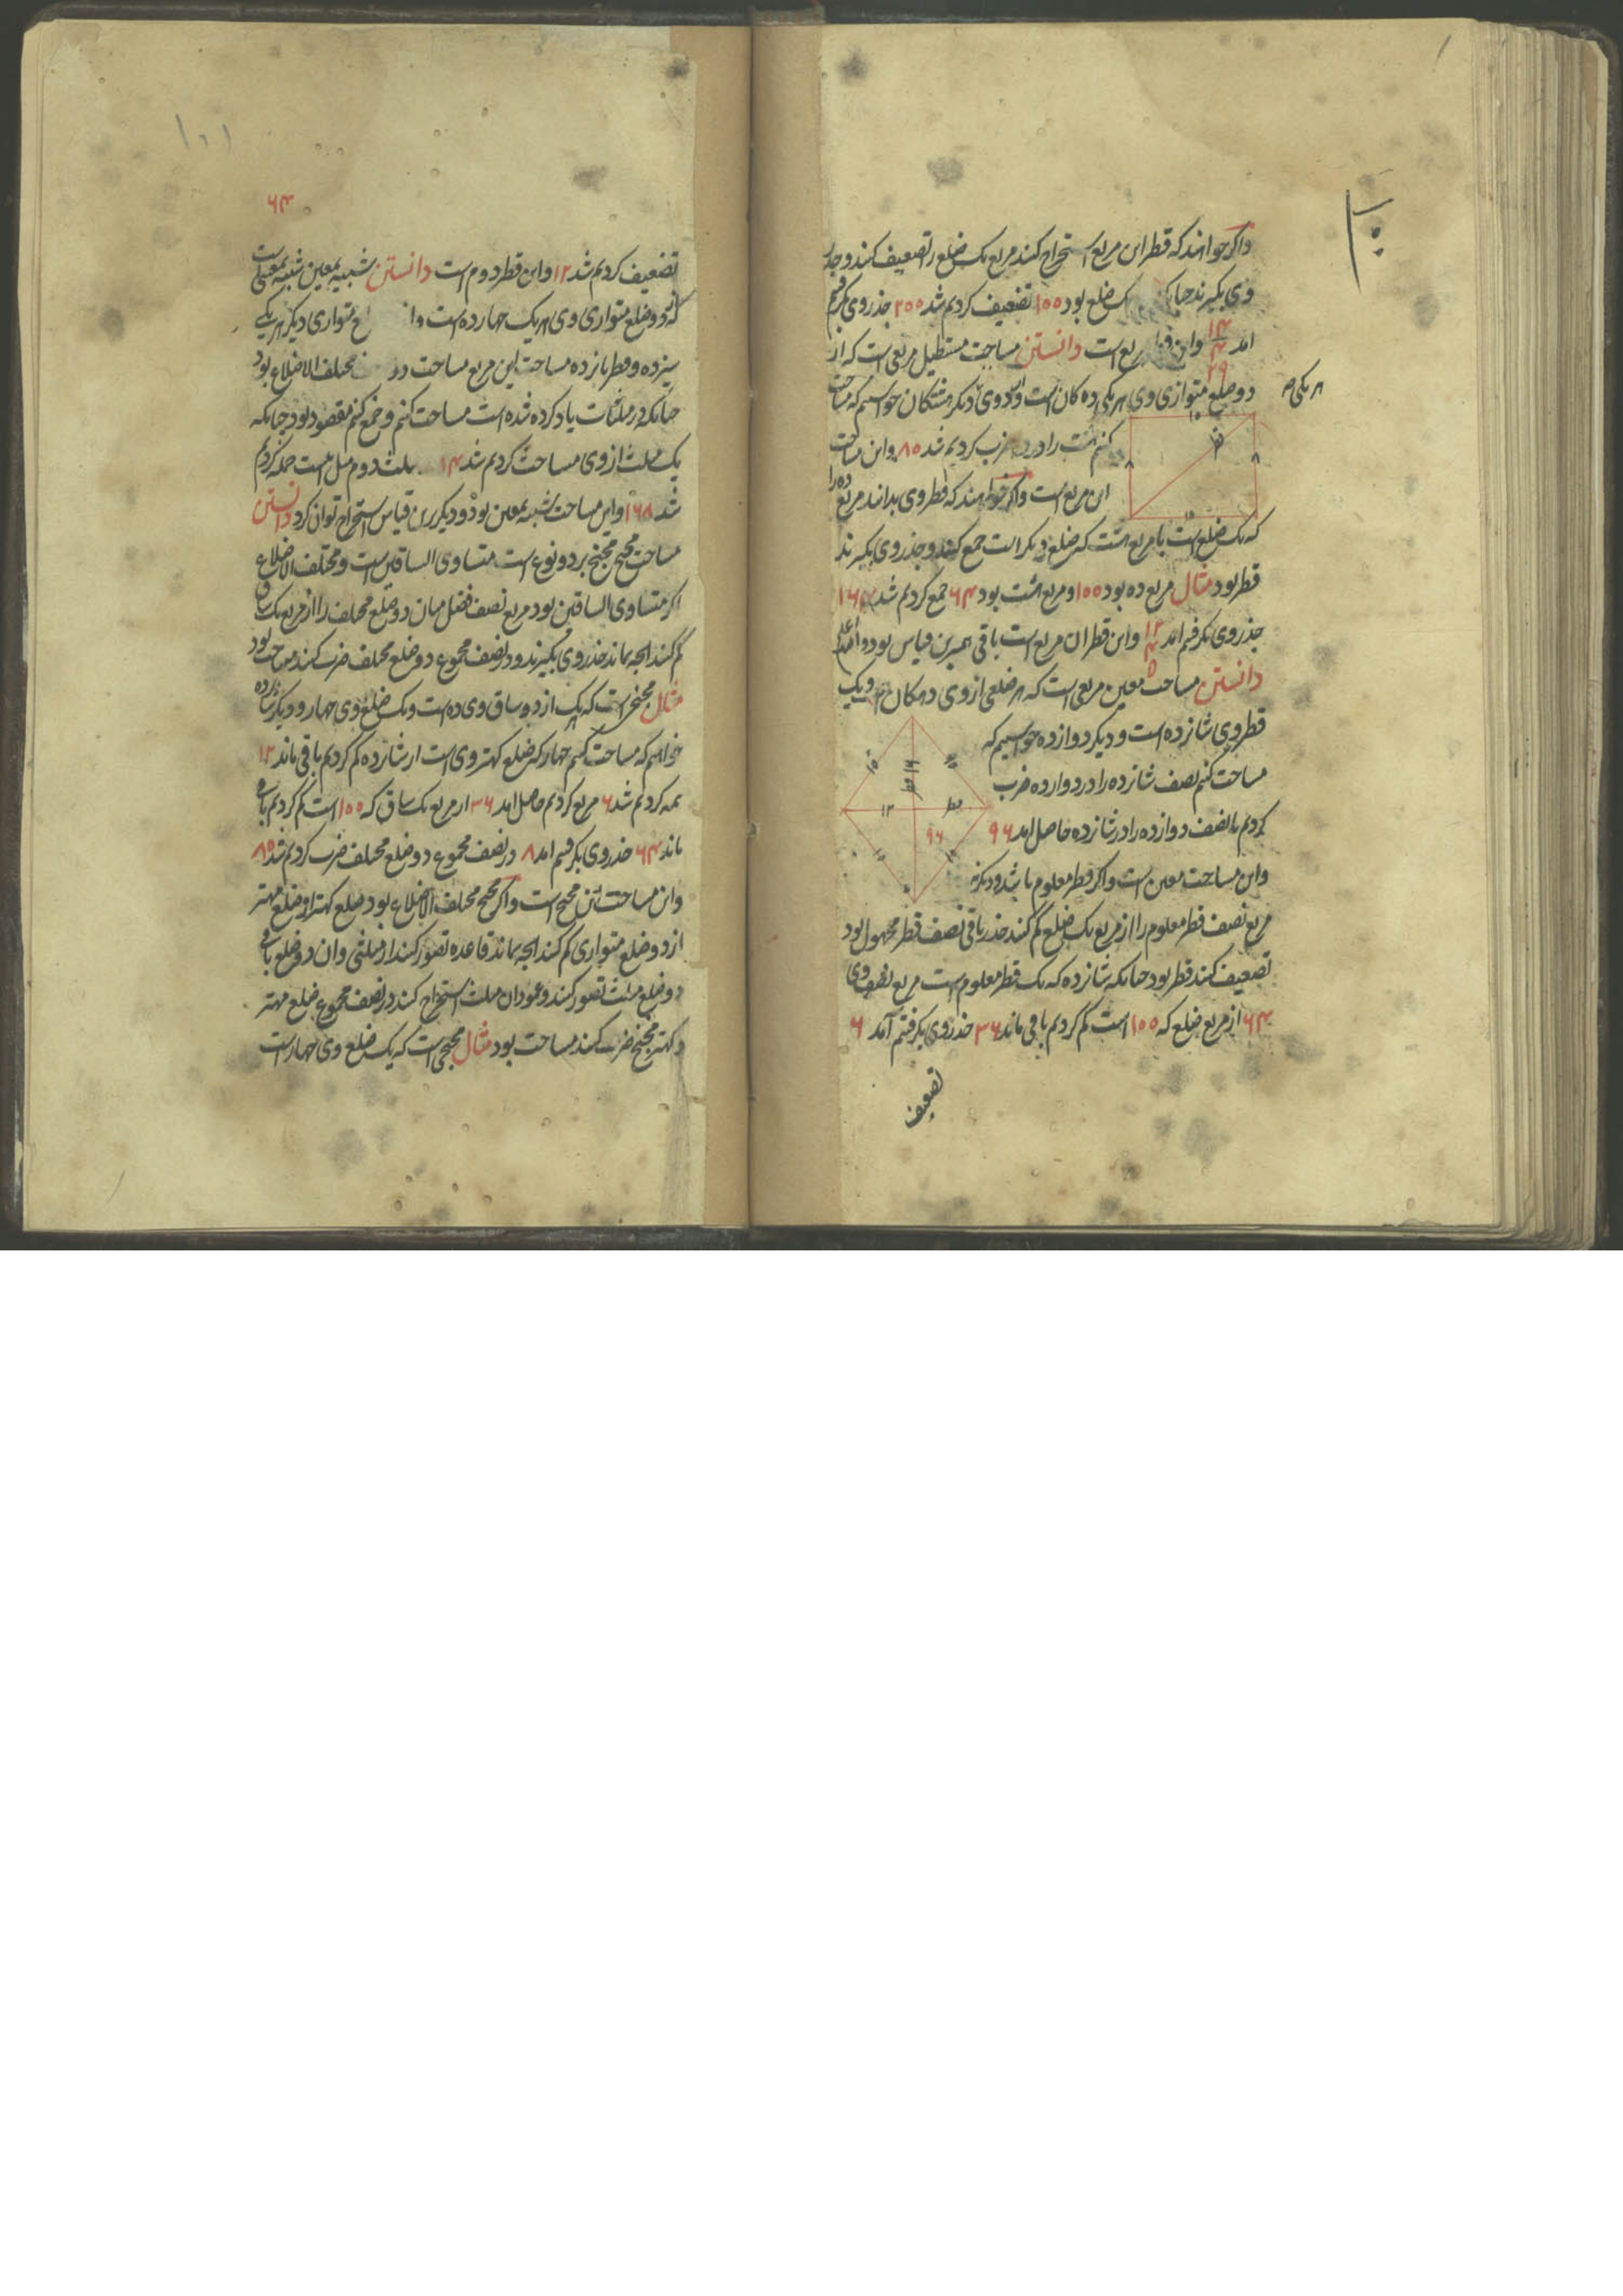 واکر خواهند که قطر این مربع استخراج کنند مربع یک ضلع را تضعیف کنند و جذر
وی بکیرند یک ضلع بود ۱۰۰ تضعیف کردیم شد ۲۰۰ جذر وی کرفتیم
امد ۱۴ ۴ ۲۹ و این است دانستن مساحت مستطیل مربعی است که از
دو ضلع متوازی وی هر یکی ده کان است و دو وی دیکر هشتکان خواستیم که مساحت
کنیم هشت را در ده ضرب کردیم شد ۸۰ و این مساحت
این مربع است واکر خواهند که قطر وی بدانند مربع ده را
که یک ضلع است با مربع هشت که ضلع دیکر است جمع کنند و جذر وی بکیرند
قطر بود مثال مربع ده بود ۱۰۰ و مربع هشت بود ۶۴ جمع کردیم شد ۱۶۴
جذر وی بکرفتیم امد ۱۲ و این قطر ان مربع است باقی همبرین قیاس بود
دانستن مساحت معین مربعی است که هر ضلعی از وی ده کان و یک
قطر وی شانزده است و دیکر دوازده خواستیم که
مساحت کنیم نصف شانزده را در دوازده ضرب
کردیم یا نصف دوازده را در شانزده حاصل امد ۹۶
و این مساحت معین است واکر قطر معلوم باشد و دیکر نه
مربع نصف قطر معلوم را از مربع یک ضلع کم کنند جذر باقی نصف قطر مجهول بود
تضعیف کنند قطر بود چنانکه شانزده که یک قطر معلوم است مربع نصف وی
۶۴ از مربع ضلع که ۱۰۰ است کم کردیم باقی ماند ۳۶ جذر وی بکرفتیم آمد ۶
تضعیف
هر یکی
۱۰
۸
۸
۱۰
قطر
۱۰
۱۰
قطر ۱۶
۱۲
قطر
۹۶
۱۰
۱۰
۱۰۱
۶۴
تضعیف کردیم شد ۱۲ و این قطر دوم است دانستن شبیه بمعین شبیه بمعین است
که دو ضلع متوازی وی هر یک چهارده است متوازی دیکر هر یکی
سیزده و قطر پانزده مساحت این مربع مساحت دو مختلف الاضلاع بود
چنانکه در مثلثات یاد کرده شده است مساحت کنیم و جمع کنیم مقصود بود چنانکه
یک مثلث از وی مساحت کردیم شد مثلث دوم مثل است جمله کردیم
شد ۱۶۸ و این مساحت شبیه بمعین بود و دیکر برین قیاس استخراج توان کرد دانستن
مساحت مجنح مجنح بر دو نوع است متساوی الساقین است و مختلف الاضلاع
اکر متساوی الساقین بود مربع نصف فضل میان دو ضلع مختلف را از مربع یک ساق
کم کنند انچه بماند جذر وی بکیرند و در نصف مجموع دو ضلع مختلف ضرب کنند مساحت بود
مثال مجنحی است که هر یک از دو ساق وی ده است و یک ضلع وی چهار و دیکر شانزده
خواهیم که مساحت کنیم چهار که ضلع کهتر وی است از شانزده کم کردیم باقی ماند ۱۲
نیمه کردیم شد ۶ مربع کردیم حاصل امد ۳۶ از مربع یک ساق که ۱۰۰ است کم کردیم باقی
ماند ۶۴ جذر وی بکرفتیم امد ۸ در نصف مجموع دو ضلع مختلف ضرب کردیم شد ۸۰
و این مساحت این مجنح است واکر مجنح مختلف الاضلاع بود ضلع کهتر از ضلع مهتر
از دو ضلع متوازی کم کنند انچه بماند قاعده تصور کنند از مثلثی وان دو ضلع باقی
دو ضلع مثلث تصور کنند و عمود ان مثلث استخراج کنند در نصف مجموع ضلع مهتر
و کهتر مجنح ضرب کنند مساحت بود مثال مجنحی است که یک ضلع وی چهار است